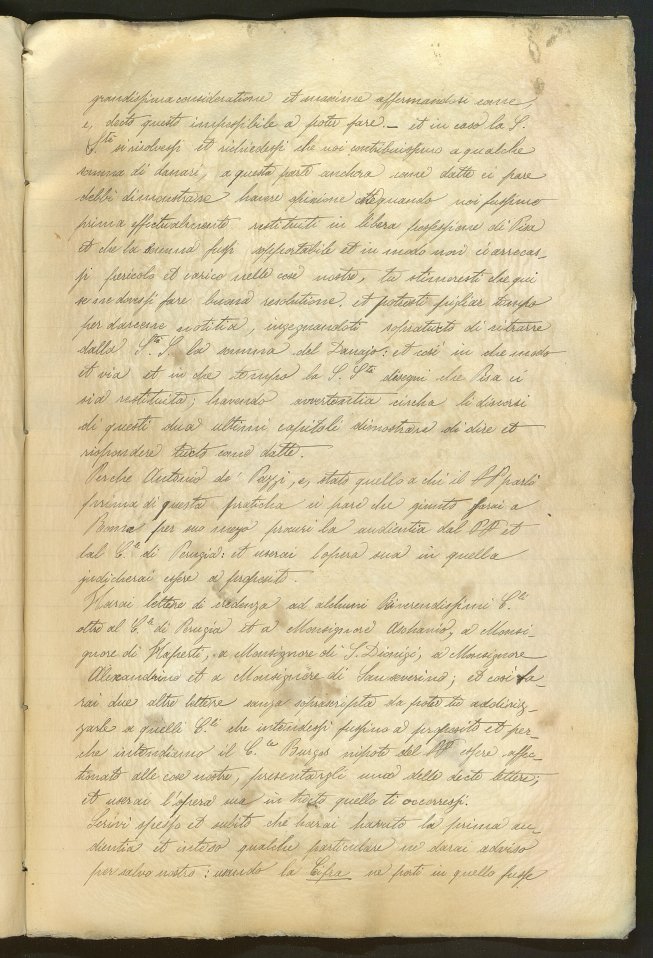 grandissima consideratione et maxime affermandosi come
e, decto questo impossibile a poter fare. – et in caso la S.
S.tà si risolvessi et richiedessi che noi contribuissimo a qualche
somma di danari, a questa parte anchora come datte ci pare
debbi dimostrare havere opinione che quando noi fussimo
prima effectualmente restituiti in libera possessione di Pisa
et che la somma fussi sopportabile et in modo non ci arrecas-
si pericolo et carico nelle cose nostre, tu stimeresti che qui
se ne dovessi fare buona resolutione. et potresti pigliar tempo
per darcene notitia, ingegnandoti sopratucto di ritrarre
dalla S.tà S. la somma del Danajo: et così in che modo
et via et in che tempo la S. S.tà disegni che Pisa ci
sia restituita; havendo avvertentia circha li discorsi
di questi dua ultimi capitoli dimostrare di dire et
rispondere tucto come datte.
Perche Antonio de' Pazzi, e, stato quello a chi il PP parlò
prima di questa praticha ci pare che giunto sarai a
Roma per suo mezo procuri la audientia dal PP et
dal C.le di Perugia: et userai l'opera sua in quello
judicherai essere a proposito.
Harai lettere di credenza ad alchuni Reverendissimi C.li
oltre al C.le di Perugia et a Monsignore Aschanio, a Monsi-
gnore di Naperti, a Monsignore di S. Dionigi, a Monsignore
Alexandrino et a Monsignore di Sanseverino; et così ha-
rai due altre lettere sanza soprascripta da poter tu addiriz-
zarle a quelli C.li che intendessi fussino a proposito et per-
che intendiamo il C.le Burges nipote del PP essere affec-
tionato alle cose nostre, presentargli una delle decte lettere;
et userai l'opera sua in tucto quello ti occorressi.
Scrivi spesso et subito che harai havuto la prima au-
dientia et inteso qualche particulare ne darai adviso
per salvo nostro: usando la Cifra ne porti in quello fusse